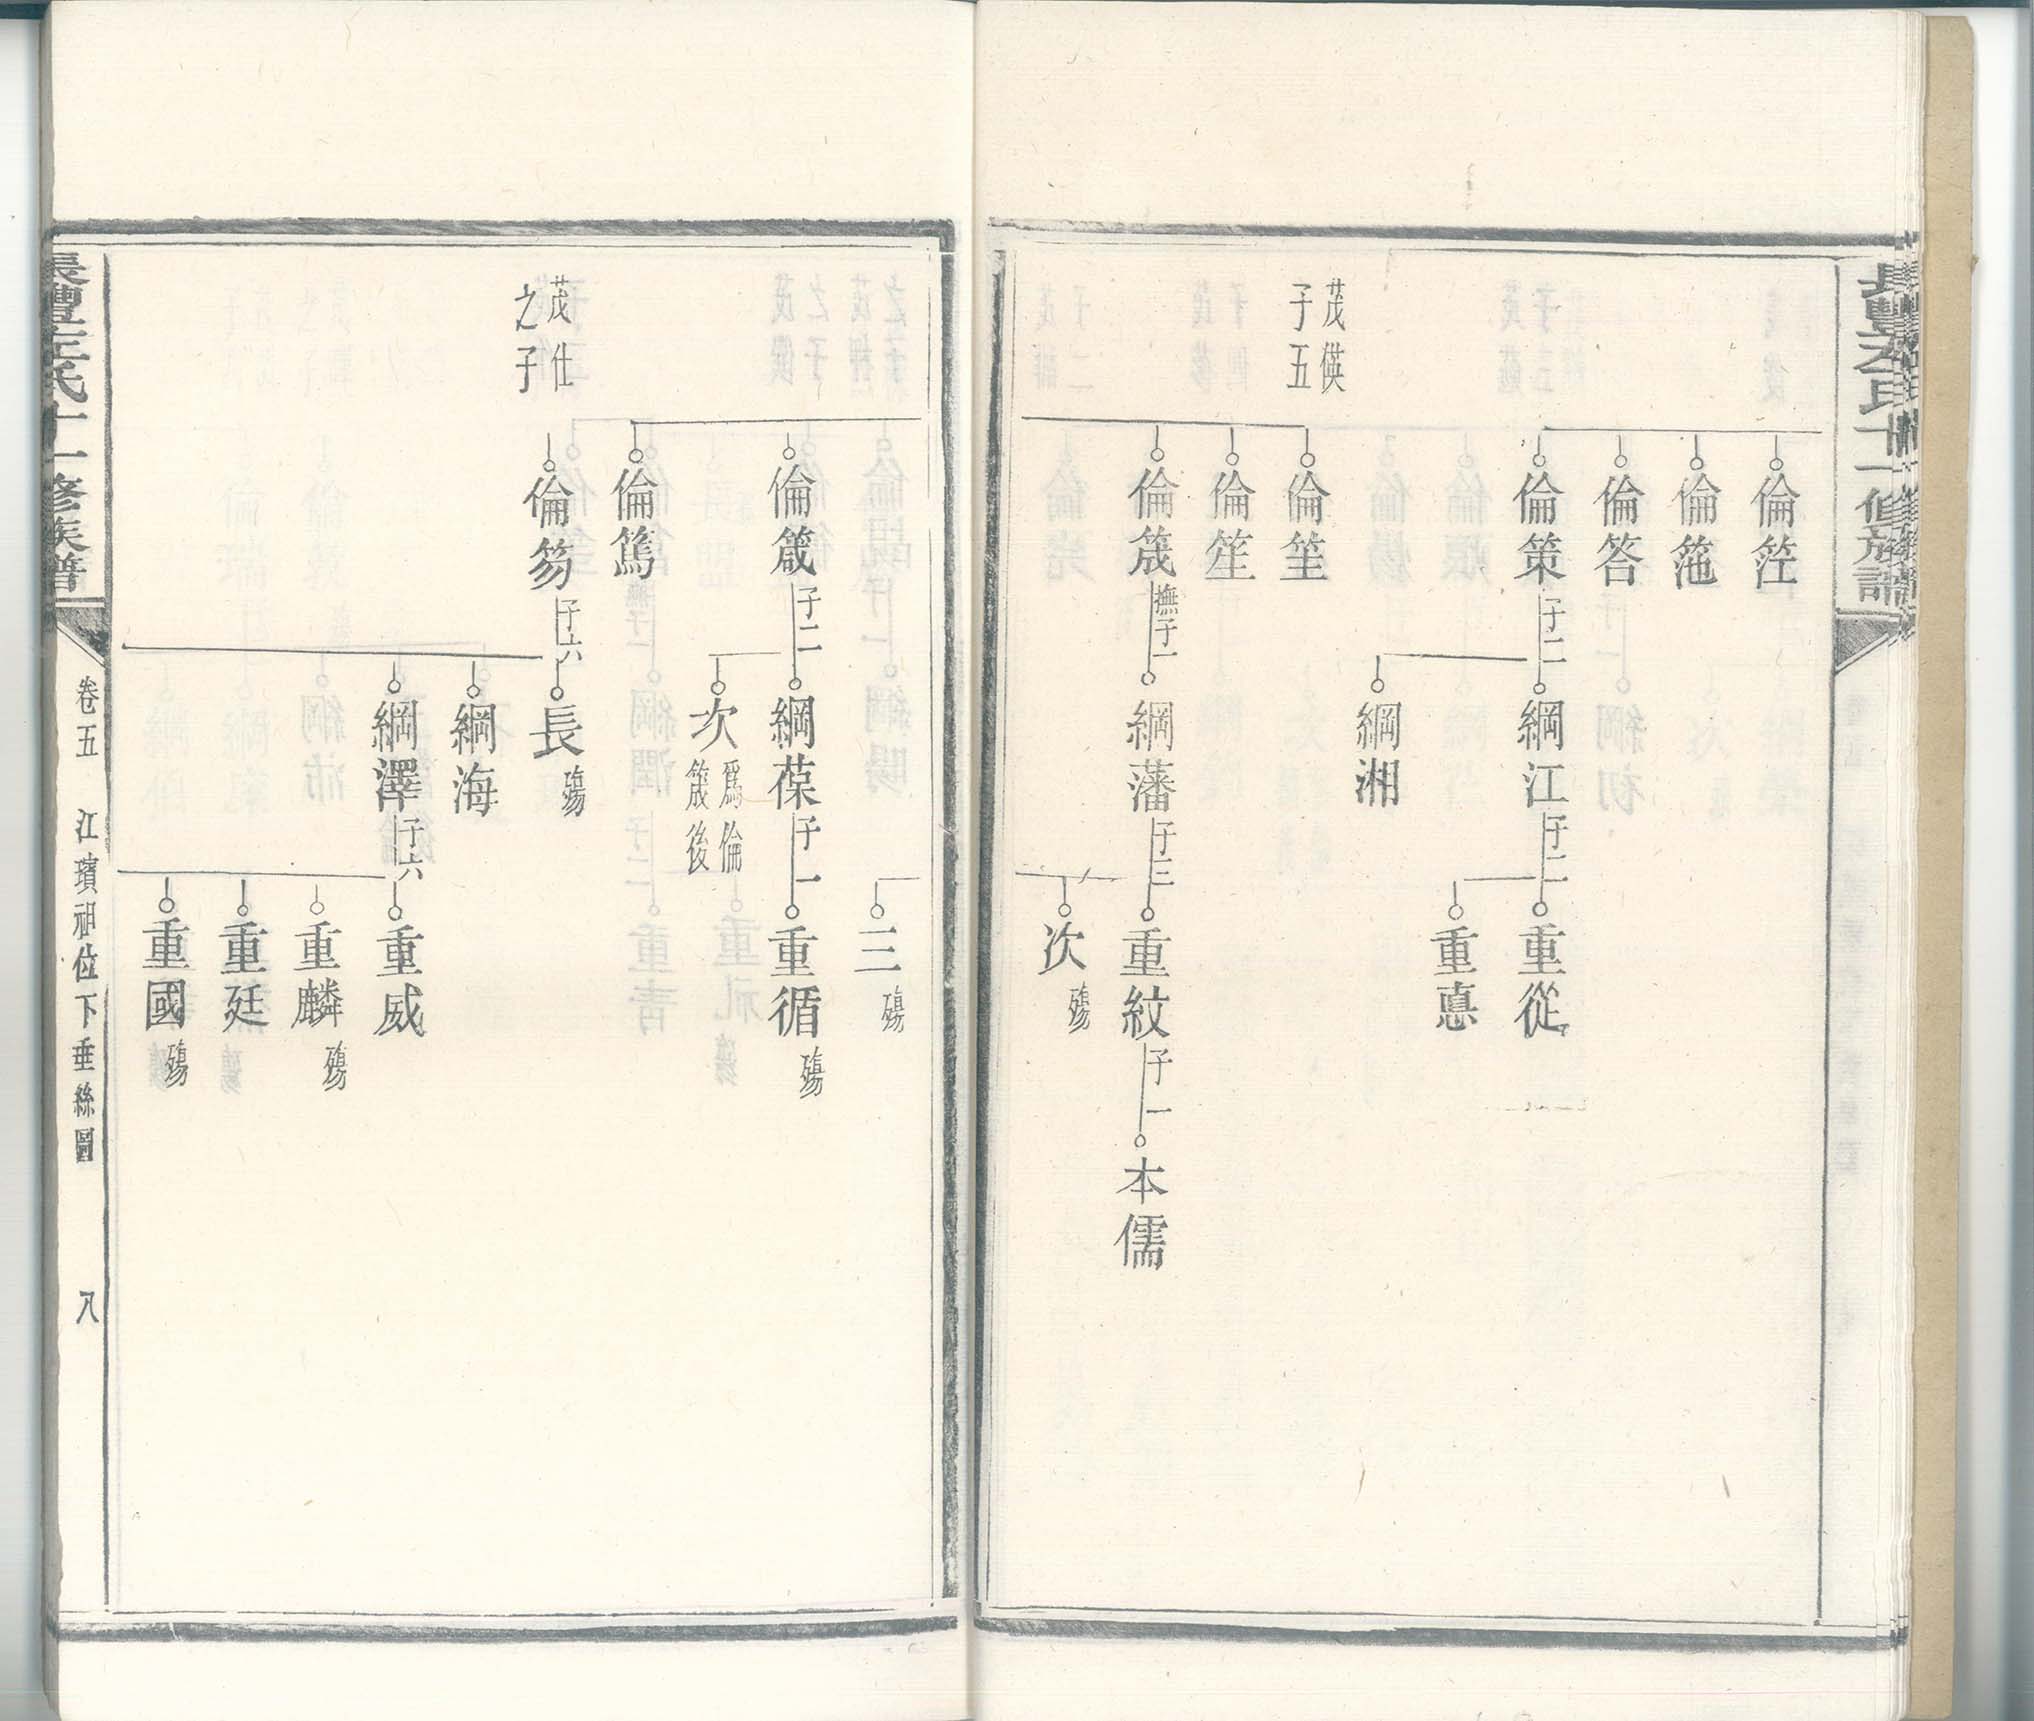 倫箮
倫箈
倫答
倫策 子二
綱江 子二
重從
重惪
綱湘
茂偀
子五
倫筀
倫笙
倫筬 撫子一
綱藩 子三
重紋 子一
本儒
次 殤
三 殤
倫箴 子二
綱葆 子一
重循 殤
次 爲倫
筬後
倫篤
茂仕
之子
倫笏 子六
長 殤
綱海
綱澤 子六
重威
重麟 殤
重廷
重國 殤
氏十一修族譜
卷五 江璸祖位下垂絲圖 八